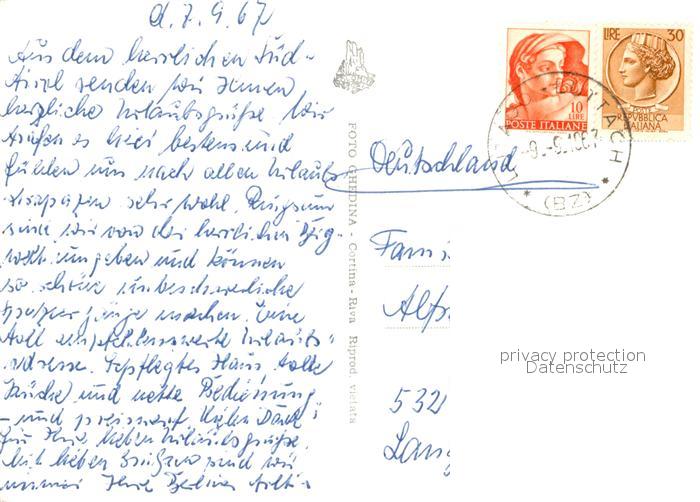 d. 7. 9. 67
Aus dem herrlichen Süd-
tirol senden wir Ihnen
herzliche Urlaubsgrüße. Wir
es hier bestens und
fühlen uns nach allen Urlaubs-
strapazen sehr wohl. Ringsum
sind wir von der herrlichen Berg-
welt umgeben und können
so schöne unbeschwerliche
Spaziergänge machen. Eine
toll empfehlenswerte Urlaubs-
adresse. Gepflegtes Haus, tolle
Küche und nette Bedienung
- und preiswert. Vielen Dank
für Ihre lieben Urlaubsgrüße.
Mit lieben Grüßen sind wir
immer Ihre Berliner
FOTO GHEDINA - Cortina - Riva Riprod. vietata
10
LIRE
POSTE ITALIANE
LIRE 30
REPVBBLICA
ITALIANA
(BZ)
Deutschland
Fam
Alfr
532
Lang
privacy protection
Datenschutz